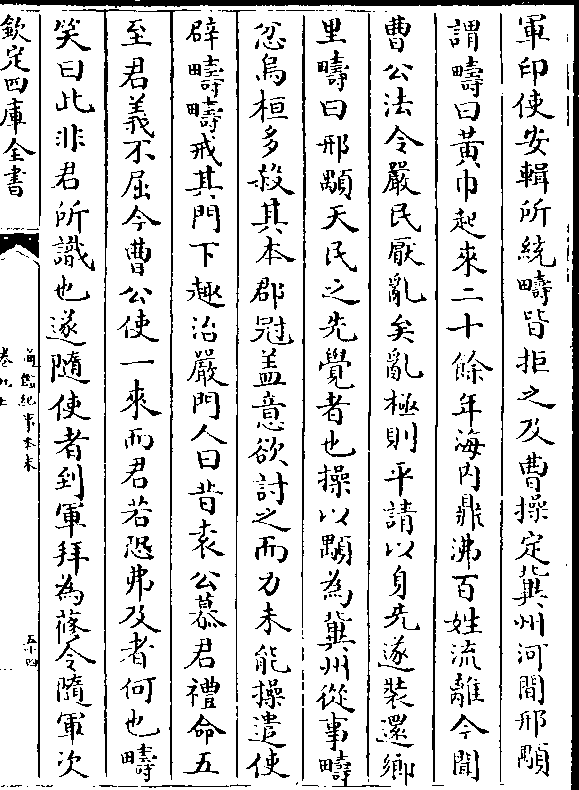 軍印使安輯所統疇皆拒之及曹操定冀州河間邢顒
謂疇曰黃巾起來二十餘年海內鼎沸百姓流離今聞
曹公法令嚴民厭亂矣亂極則平請以身先遂裝還鄉
里疇曰邢顒天民之先覺者也操以顒為冀州從事疇
忿烏桓多殺其本郡冠蓋意欲討之而力未能操遣使
辟疇疇戒其門下趣治嚴門人曰昔袁公慕君禮命五
至君義不屈今曹公使一來而君若恐弗及者何也疇
笑曰此非君所識也遂隨使者到軍拜為蓚令隨軍次
欽定四庫全書
通鑑紀事本末
卷九上
五十四